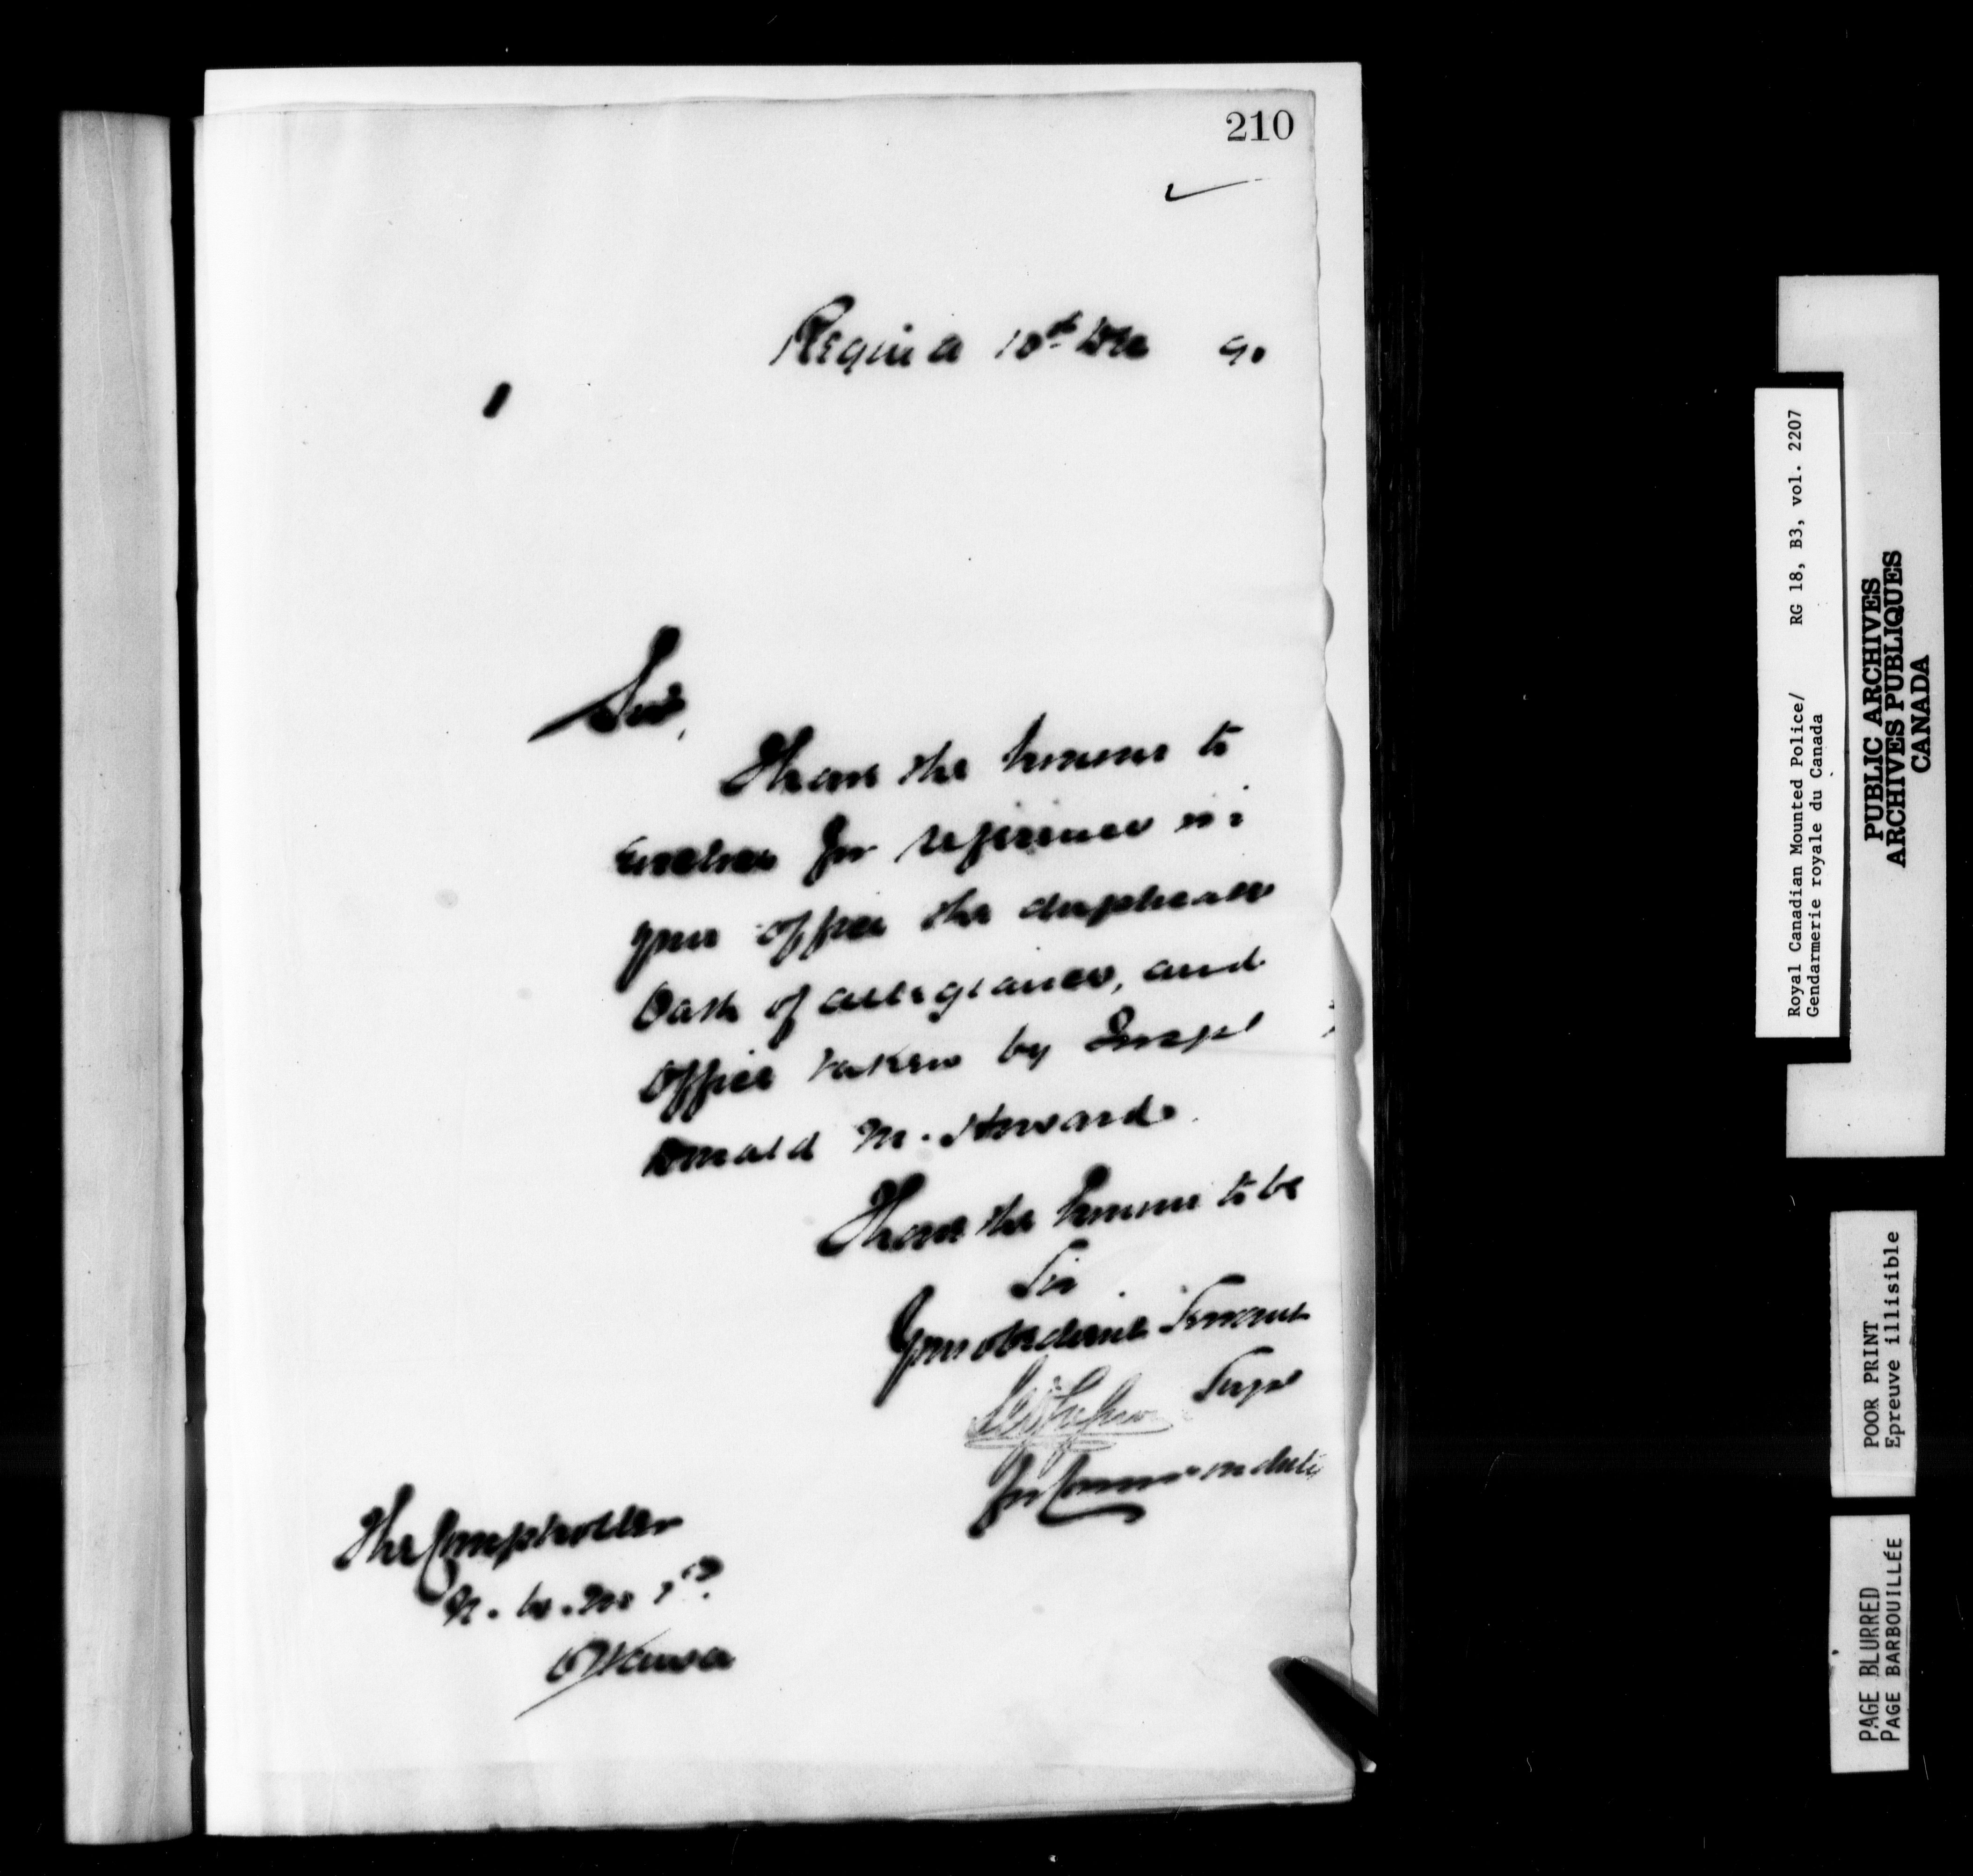 210
Regina 10th Dec 90
Sir,
I have the honour to
enclose for reference in
your office the duplicate
Oath of allegiance, and
Office taken by Inspr
Donald M. Howard.
I have the honour to be
Sir
Your obedient Servant
Supt
The Comptroller
N. W. M. P.
Ottawa
Royal Canadian Mounted Police/ RG 18, B3, vol. 2207
Gendarmerie royale du Canada
PUBLIC ARCHIVES
ARCHIVES PUBLIQUES
CANADA
POOR PRINT
Epreuve illisible
PAGE BLURRED
PAGE BARBOUILLÉE